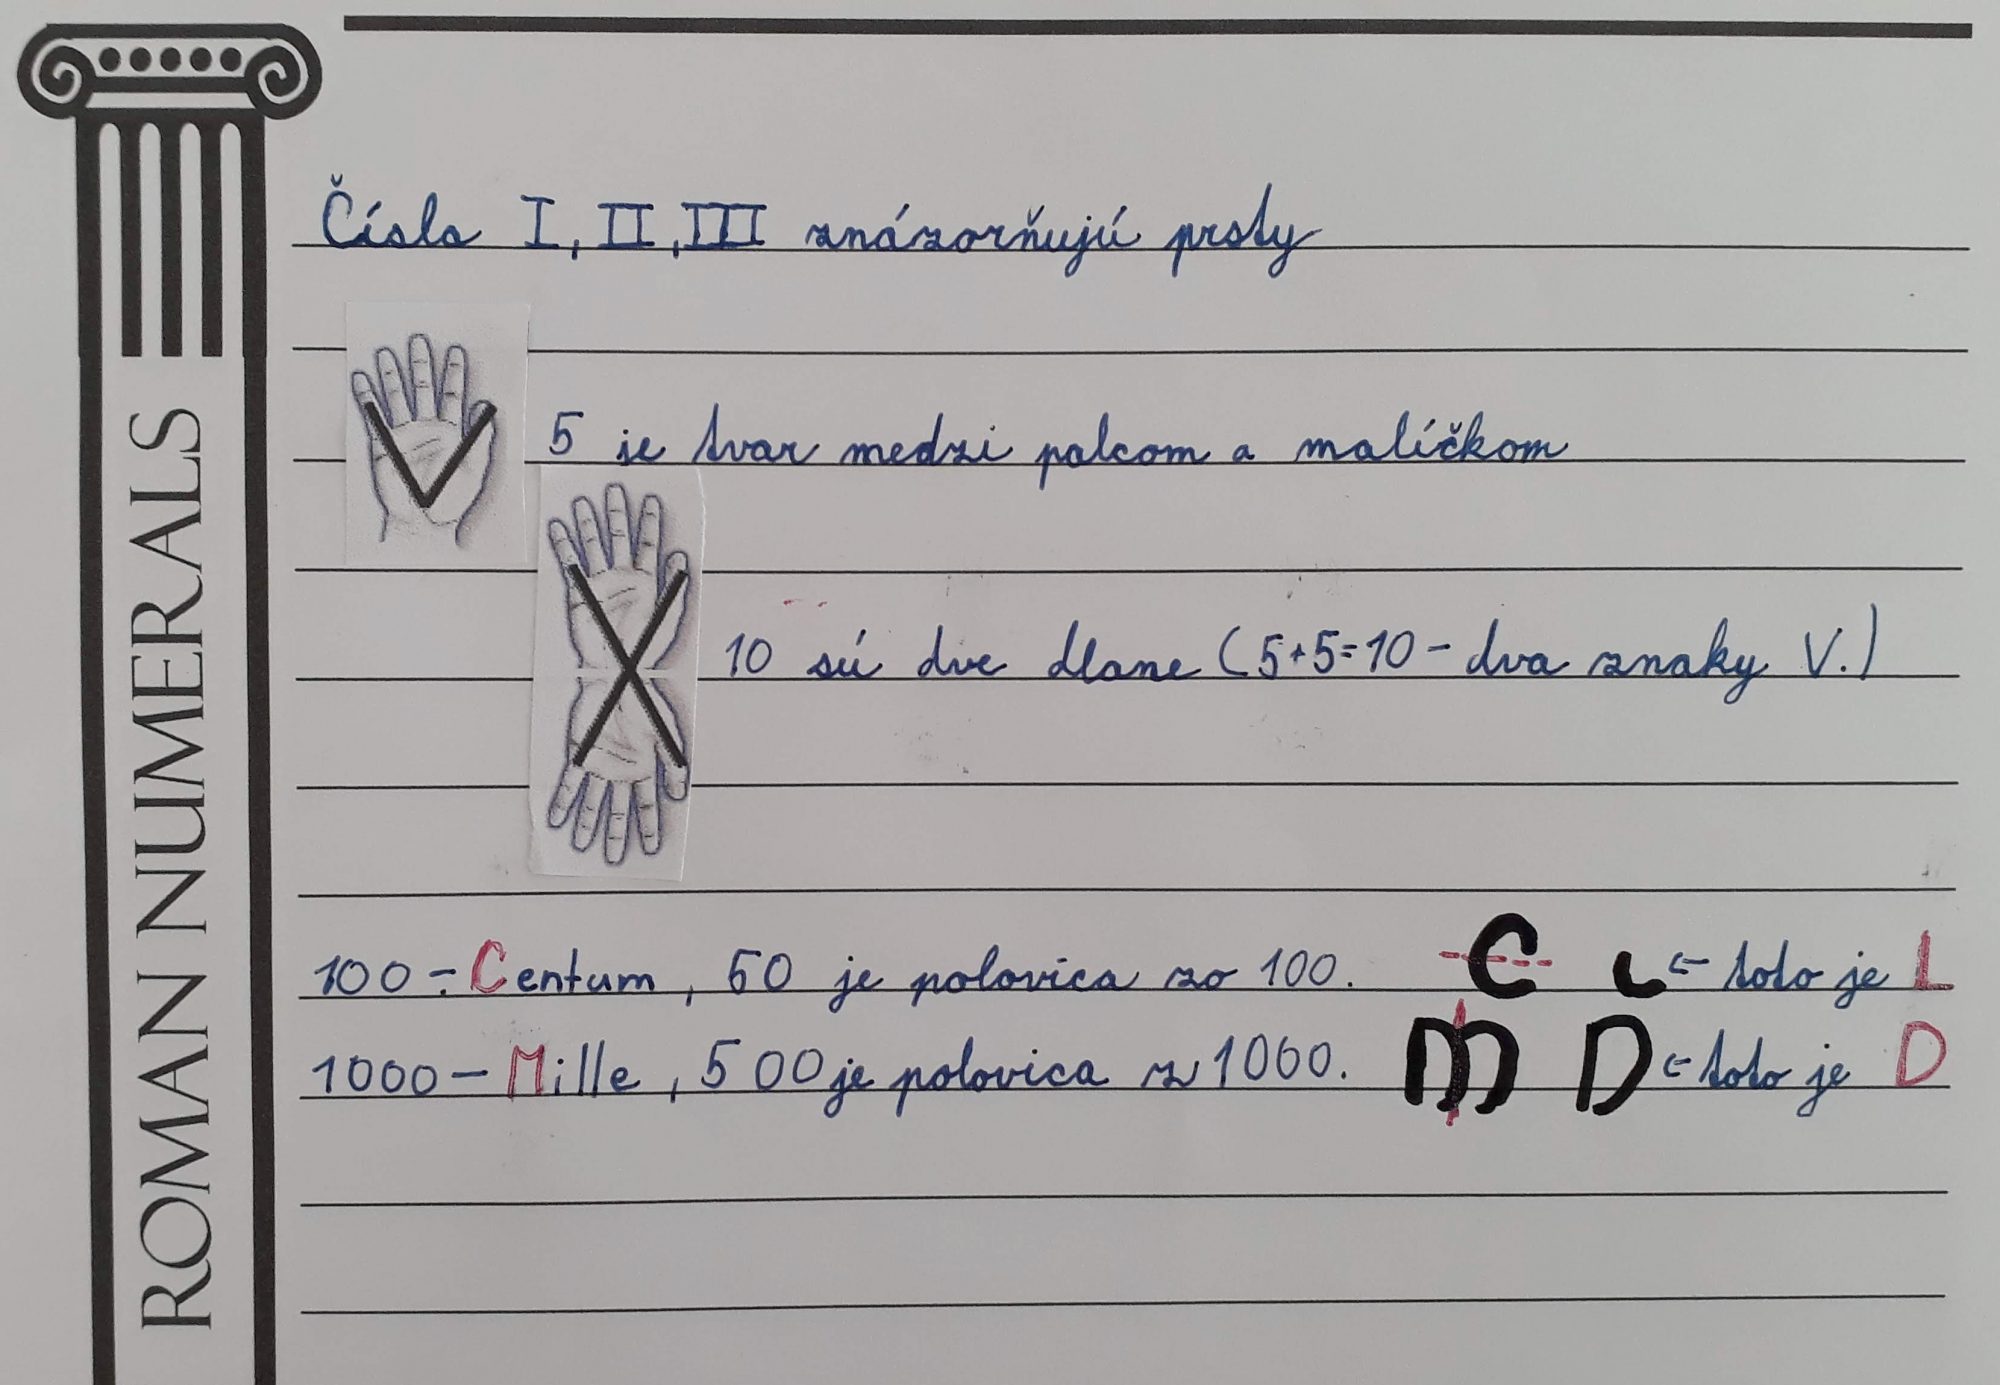 ROMAN NUMERALS
Čísla I, II, III znázorňujú prsty
5 je tvar medzi palcom a malíčkom
10 sú dve dlane (5+5=10 - dva znaky V.)
100 - Centum, 50 je polovica zo 100. C L ← toto je L
1000 - Mille, 500 je polovica z 1000. M D ← toto je D